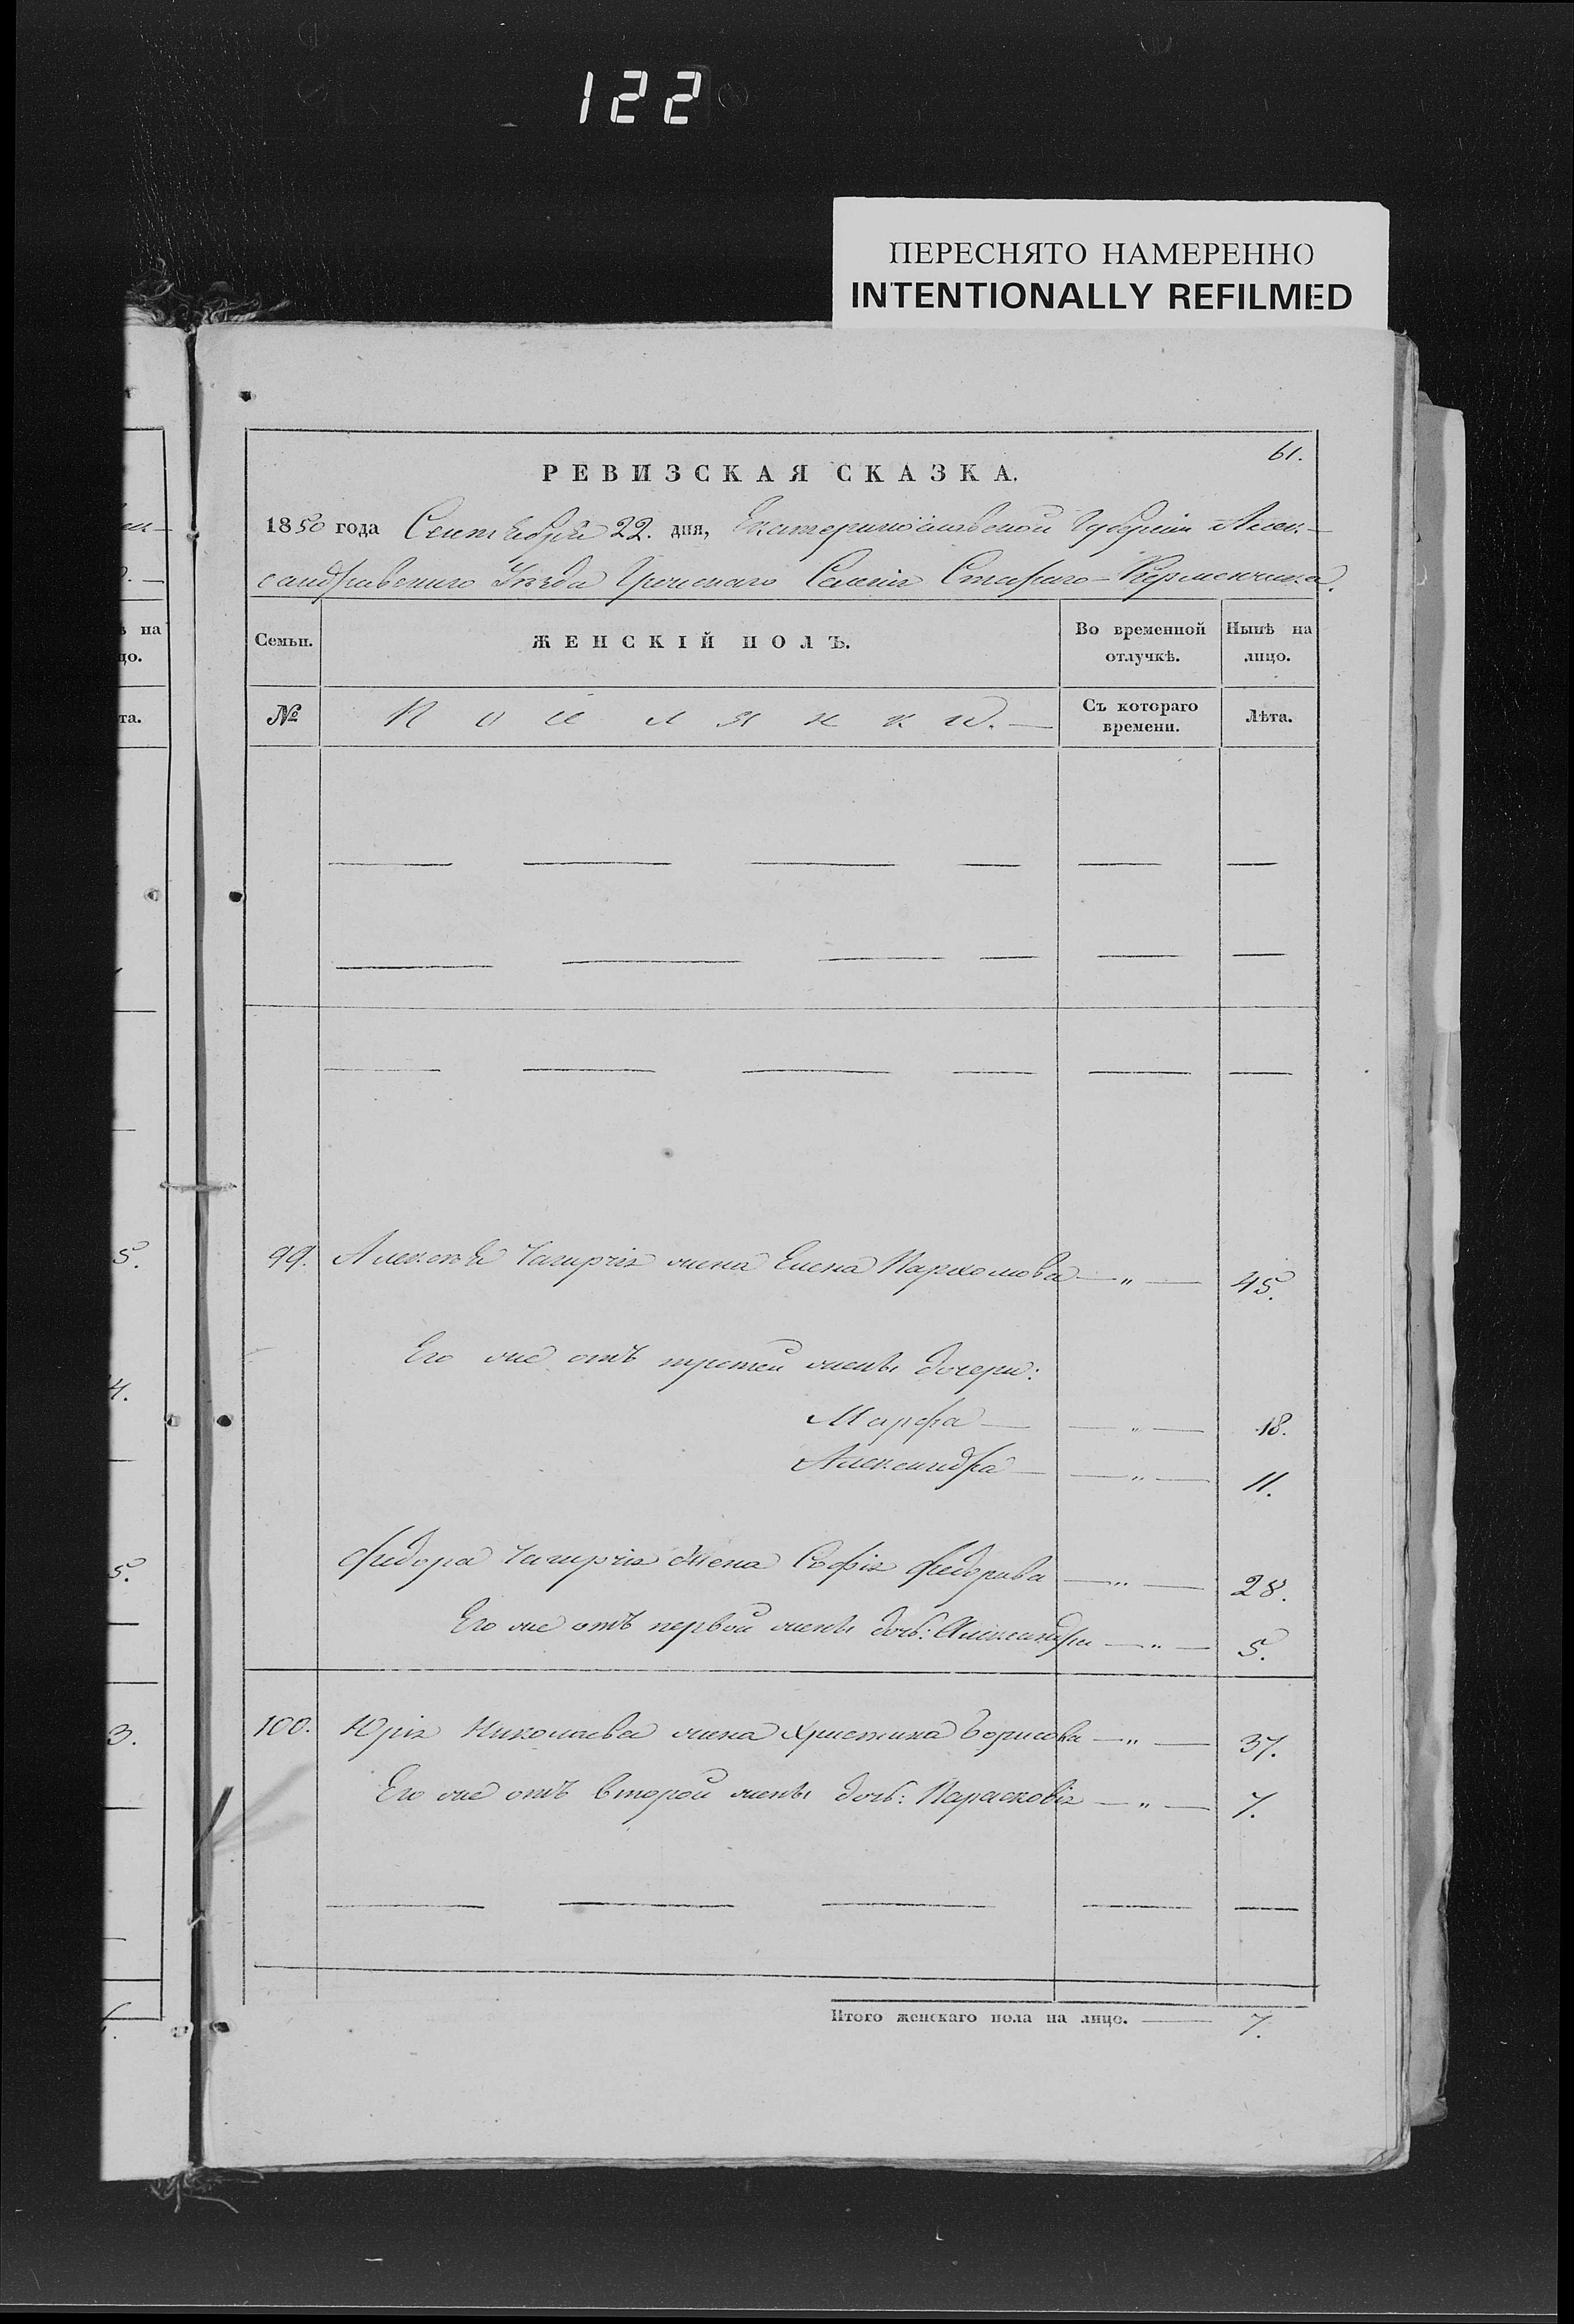 122
ПЕРЕСНЯТО НАМЕРЕННО
INTENTIONALLY REFILMED
61.
РЕВИЗСКАЯ СКАЗКА.
1850 года Сентября 22. дня, Екатеринославской Губернiи Алек-
сандравскаго Уѣзда Греческаго Селенiя Стараго-Керменчика.
Семьи.
ЖЕНСКIЙ ПОЛЪ.
Во временной отлучкѣ.
Нынѣ на лицо.
№
Поселянки.
Съ котораго времени.
Лѣта.
99. Алексѣя Чагирчiя жена Елена Пархомова — „ — 45.
Его же отъ третей жены дочери:
Марфа — „ — 18.
Александра — „ — 11.
Федора Чагирчiя жена Софiя Федорава — „ — 28.
Его же отъ первой жены дочь: Александра — „ — 5.
100. Юрiя Николаева жена Христина Борисова — „ — 37.
Его же отъ второй жены дочь: Парасковiя — „ — 7.
Итого женскаго пола на лицо. — 7.
на
цо.
та.
5.
4.
5.
3.